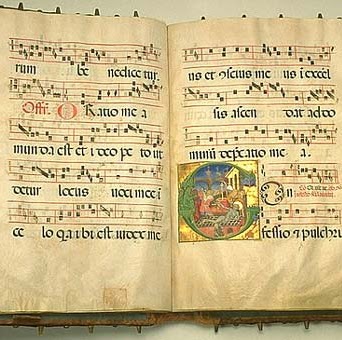 rum be nedice tur.
Offr. O Ratio me a
munda est et ideo pe to ut
detur locus voci mee i
ce lo q a ibi est iudex me
us et ꝯscius me us i excel
sis ascen dat ad do
minū depcatio me a.
On
fessio ⁊ pulchri